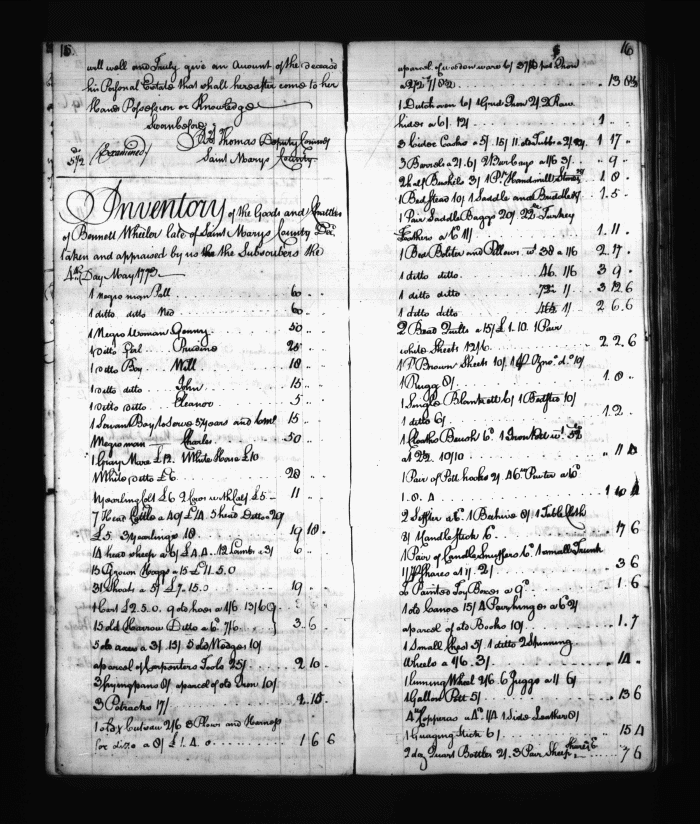 15.
will well and Truly give an Amount of the deceased
his Personal Estate that shall hereafter come to her
Hand Possession or Knowledge
Sworn before
Thomas Deputy Comry
5/2 (Examined) Saint Marys County
Inventory of the Goods and Chattles
of Bennett Wheeler late of Saint Marys County Decd
taken and appraised by us the the Subscribers the
4th Day May 177
1 negro man Pall 60 " "
1 ditto ditto Ned 60 " "
1 Negro Woman Genny 50 " "
1 ditto Girl Prudine 25 " "
1 ditto Boy Will 18 " "
1 ditto ditto John 15 "
1 ditto ditto Eleanor 5 "
1 Servan Boy to Serve 5 years and 15 "
Negro man Charles 50 "
1 Gray Mare £12. White Horse £10
White ditto £6 28
1 yearling Colt £6 2 Cows with Calf £5 11 "
7 Head Cattle a 40/ £14 5 head Ditto a 20/
£5. 3 yearlings 10 19 10
14 head sheep a 6/ £4.4. 12 Lambs a 3/ 6
13 Grown Hoggs a 15 £ 5.0
31 Shoats a 5/ £7.15.0 19
1 Cart £2.5.0. 9 old hoes a 1/6 13/6
15 old Harrow Ditto a 6d 7/6 3.6
5 old axes a 3/ 15/. 5 old Wedges 10/
a parcel of Carpenters Tools 25/ 2 10
3 frying pans 8/ a parcel of old Iron 10/
3 Potracks 17/ 2.15
1 old Cutteau 2/6 3 Plows and Harness
for ditto a 8/ £1.4.0 1 6 6
16
a parcel of wooden ware 6/ 37 lb pot Iron
a 2/2 7/ 13
1 Dutch oven 6/ 1 2 Raw
hides a 6/. 12/. 1 "
3 Cider Casks a 5/. 15/ 11 old Tubbs a 2/ 1 17
3 Barrels a 2/. 6/ 2 a 1/6 3/. " 9
2 half Bushels 3/ 1 Pr. Handmill Stones 1 8
1 Bed Stead 10/ 1 Saddle and Bridle 1.5
1 Pair Saddle Baggs 20/ 22 Turkey
Feathers a 6d 11/ 1.11
1 Bed Bolster and Pillows wt 38 a 1/6 2.17
1 ditto ditto 46. 1/6 3 9
1 ditto ditto 1/ 3 12 6
1 ditto ditto 1/ 2 6 6
2 Bead Quilts a 15/ £1.10. 1 Pair
white Sheets 12/6 2 2 6
1 Pr Brown Sheets 10/ 1 do 10/
1 Rugg 8/ 1.8
1 Single Blankett 6/ 1 10/
1 ditto 6/ 12
1 Cloaths Brush 6d 1 Iron Pott wt
a 10/10 " 11 4
1 Pair of Pott hooks 2/ 46 lb Puter a 6d
1.0.4 1 4
2 Sifter a 6d 1 Beehive 8/ 1 Table Cloth
8/ 1 Candle Stick 6 17 6
1 Pair of Candle Snuffers 6d 1 small Trunk
1/ a 1/. 2/ 3 6
2 Painted Toy Boxes a 9d 1.6
1 old Canoe 15/ 4 a 6d 2/
a parcel of old Books 10/ 1.7
1 Small Chest 5/. 1 ditto 2 Spinning
Wheels a 4/6. 3/. 14
1 Linning Wheel 2/6 6 Juggs a 1/ 6/
1 Gallon Pott 5/ 13 6
4 lb Copperas a 4d 1/4 1 Side Leather 8/
1 Guaging Stick 6/ 15 4
2 doz Quart Bottles 2/. 3 Pair Sheep Shears 7 6